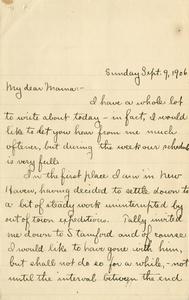 Sunday Sept. 9, 1906
My dear Mama:-
I have a whole lot
to write about today - in fact, I would
like to let you hear from me much
oftener, but during the week our schedule
is very full.
In the first place I am in New
Haven, having decided to settle down to
a bit of steady work uninterrupted by
out of town expeditions. Tally invited
me down to Stamford and of course
I would like to have gone with him,
but shall not do so for a while, - not
until the interval between the end